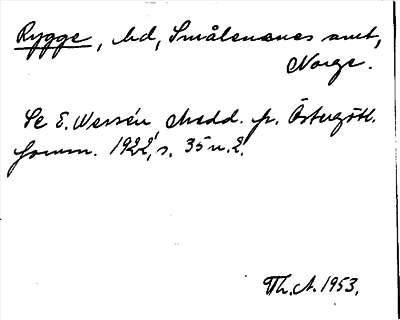 Rygge, hd, Smålenenes amt,
Norge.
Se E. Wessén, Medd. fr. Östergötl.
fornm. 1922, s. 35 n. 2.
Th. A. 1953.